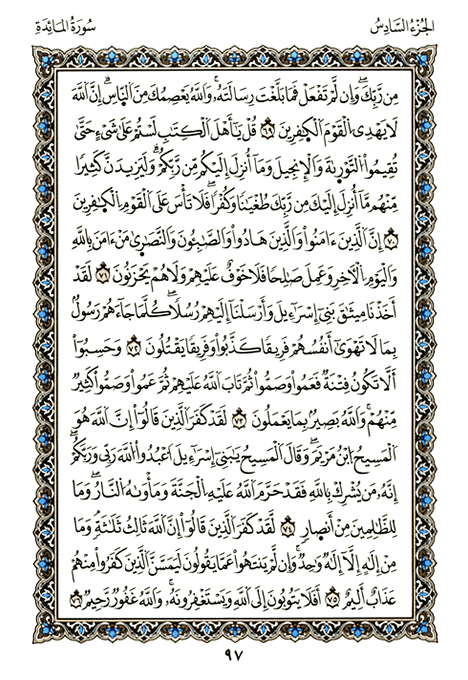 الجُزْءُ السَّادِسُ
سُورَةُ المَائِدَةِ
مِن رَّبِّكَ ۖ وَإِن لَّمْ تَفْعَلْ فَمَا بَلَّغْتَ رِسَالَتَهُۥ ۚ وَٱللَّهُ يَعْصِمُكَ مِنَ ٱلنَّاسِ ۗ إِنَّ ٱللَّهَ
لَا يَهْدِى ٱلْقَوْمَ ٱلْكَٰفِرِينَ ٦٩ قُلْ يَٰٓأَهْلَ ٱلْكِتَٰبِ لَسْتُمْ عَلَىٰ شَىْءٍ حَتَّىٰ
تُقِيمُوا۟ ٱلتَّوْرَىٰةَ وَٱلْإِنجِيلَ وَمَآ أُنزِلَ إِلَيْكُم مِّن رَّبِّكُمْ ۗ وَلَيَزِيدَنَّ كَثِيرًا
مِّنْهُم مَّآ أُنزِلَ إِلَيْكَ مِن رَّبِّكَ طُغْيَٰنًا وَكُفْرًا ۖ فَلَا تَأْسَ عَلَى ٱلْقَوْمِ ٱلْكَٰفِرِينَ
٧٠ إِنَّ ٱلَّذِينَ ءَامَنُوا۟ وَٱلَّذِينَ هَادُوا۟ وَٱلصَّٰبِـُٔونَ وَٱلنَّصَٰرَىٰ مَنْ ءَامَنَ بِٱللَّهِ
وَٱلْيَوْمِ ٱلْءَاخِرِ وَعَمِلَ صَٰلِحًا فَلَا خَوْفٌ عَلَيْهِمْ وَلَا هُمْ يَحْزَنُونَ ٧١ لَقَدْ
أَخَذْنَا مِيثَٰقَ بَنِىٓ إِسْرَٰٓءِيلَ وَأَرْسَلْنَآ إِلَيْهِمْ رُسُلًا ۖ كُلَّمَا جَآءَهُمْ رَسُولٌۢ
بِمَا لَا تَهْوَىٰٓ أَنفُسُهُمْ فَرِيقًا كَذَّبُوا۟ وَفَرِيقًا يَقْتُلُونَ ٧٢ وَحَسِبُوٓا۟
أَلَّا تَكُونُ فِتْنَةٌ فَعَمُوا۟ وَصَمُّوا۟ ثُمَّ تَابَ ٱللَّهُ عَلَيْهِمْ ثُمَّ عَمُوا۟ وَصَمُّوا۟ كَثِيرٌ
مِّنْهُمْ ۚ وَٱللَّهُ بَصِيرٌۢ بِمَا يَعْمَلُونَ ٧٣ لَقَدْ كَفَرَ ٱلَّذِينَ قَالُوٓا۟ إِنَّ ٱللَّهَ هُوَ
ٱلْمَسِيحُ ٱبْنُ مَرْيَمَ ۖ وَقَالَ ٱلْمَسِيحُ يَٰبَنِىٓ إِسْرَٰٓءِيلَ ٱعْبُدُوا۟ ٱللَّهَ رَبِّى وَرَبَّكُمْ ۖ
إِنَّهُۥ مَن يُشْرِكْ بِٱللَّهِ فَقَدْ حَرَّمَ ٱللَّهُ عَلَيْهِ ٱلْجَنَّةَ وَمَأْوَىٰهُ ٱلنَّارُ ۖ وَمَا
لِلظَّٰلِمِينَ مِنْ أَنصَارٍ ٧٤ لَّقَدْ كَفَرَ ٱلَّذِينَ قَالُوٓا۟ إِنَّ ٱللَّهَ ثَالِثُ ثَلَٰثَةٍ ۘ وَمَا
مِنْ إِلَٰهٍ إِلَّآ إِلَٰهٌ وَٰحِدٌ ۚ وَإِن لَّمْ يَنتَهُوا۟ عَمَّا يَقُولُونَ لَيَمَسَّنَّ ٱلَّذِينَ كَفَرُوا۟ مِنْهُمْ
عَذَابٌ أَلِيمٌ ٧٥ أَفَلَا يَتُوبُونَ إِلَى ٱللَّهِ وَيَسْتَغْفِرُونَهُۥ ۚ وَٱللَّهُ غَفُورٌ رَّحِيمٌ ٧٦
٩٧